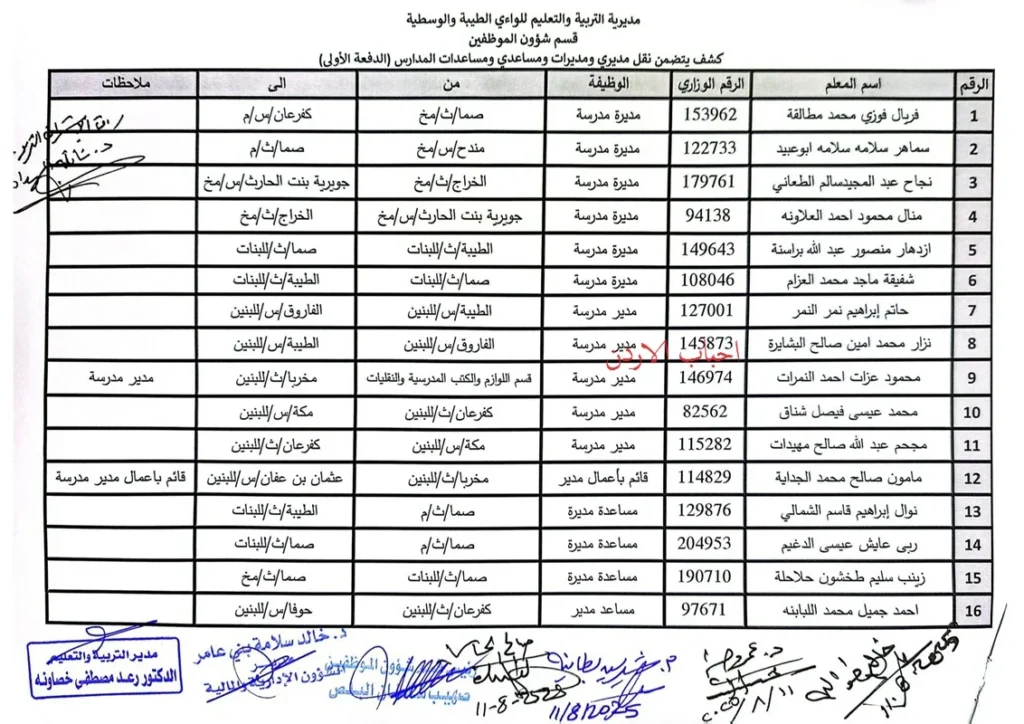 مديرية التربية والتعليم للواءي الطيبة والوسطية
قسم شؤون الموظفين
كشف يتضمن نقل مديري ومديرات ومساعدي ومساعدات المدارس (الدفعة الأولى)
الرقم اسم المعلم الرقم الوزاري الوظيفة من الى ملاحظات
1 فريال فوزي محمد مطالقة 153962 مديرة مدرسة صما/ث/مخ كفرعان/س/م
2 سماهر سلامه سلامه ابوعبيد 122733 مديرة مدرسة مندح/س/مخ صما/ث/م
3 نجاح عبد المجيدسالم الطعاني 179761 مديرة مدرسة الخراج/ث/مخ جويرية بنت الحارث/س/مخ
4 منال محمود احمد العلاونه 94138 مديرة مدرسة جويرية بنت الحارث/س/مخ الخراج/ث/مخ
5 ازدهار منصور عبد الله براسنة 149643 مديرة مدرسة الطيبة/ث/للبنات صما/ث/للبنات
6 شفيقة ماجد محمد العزام 108046 مديرة مدرسة صما/ث/للبنات الطيبة/ث/للبنات
7 حاتم إبراهيم نمر النمر 127001 مدير مدرسة الطيبة/س/للبنين الفاروق/س/للبنين
8 نزار محمد امين صالح البشايرة 145873 مدير مدرسة الفاروق/س/للبنين الطيبة/س/للبنين
احباب الاردن
9 محمود عزات احمد النمرات 146974 مدير مدرسة قسم اللوازم والكتب المدرسية والنقليات مخربا/ث/للبنين مدير مدرسة
10 محمد عيسى فيصل شناق 82562 مدير مدرسة كفرعان/ث/للبنين مكة/س/للبنين
11 مجحم عبد الله صالح مهيدات 115282 مدير مدرسة مكة/س/للبنين كفرعان/ث/للبنين
12 مامون صالح محمد الجداية 114829 قائم بأعمال مدير مخربا/ث/للبنين عثمان بن عفان/س/للبنين قائم باعمال مدير مدرسة
13 نوال إبراهيم قاسم الشمالي 129876 مساعدة مديرة صما/ث/م الطيبة/ث/للبنات
14 ربى عايش عيسى الدغيم 204953 مساعدة مديرة صما/ث/م صما/ث/للبنات
15 زينب سليم طخشون حلاحلة 190710 مساعدة مديرة صما/ث/للبنات صما/ث/مخ
16 احمد جميل محمد اللبابنه 97671 مساعد مدير كفرعان/ث/للبنين حوفا/س/للبنين
د. خالد سلامة بني عامر
الشؤون الإدارية والمالية
شؤون الموظفين
11-8-2025
11/8/2025
مدير التربية والتعليم
الدكتور رعد مصطفى خصاونه